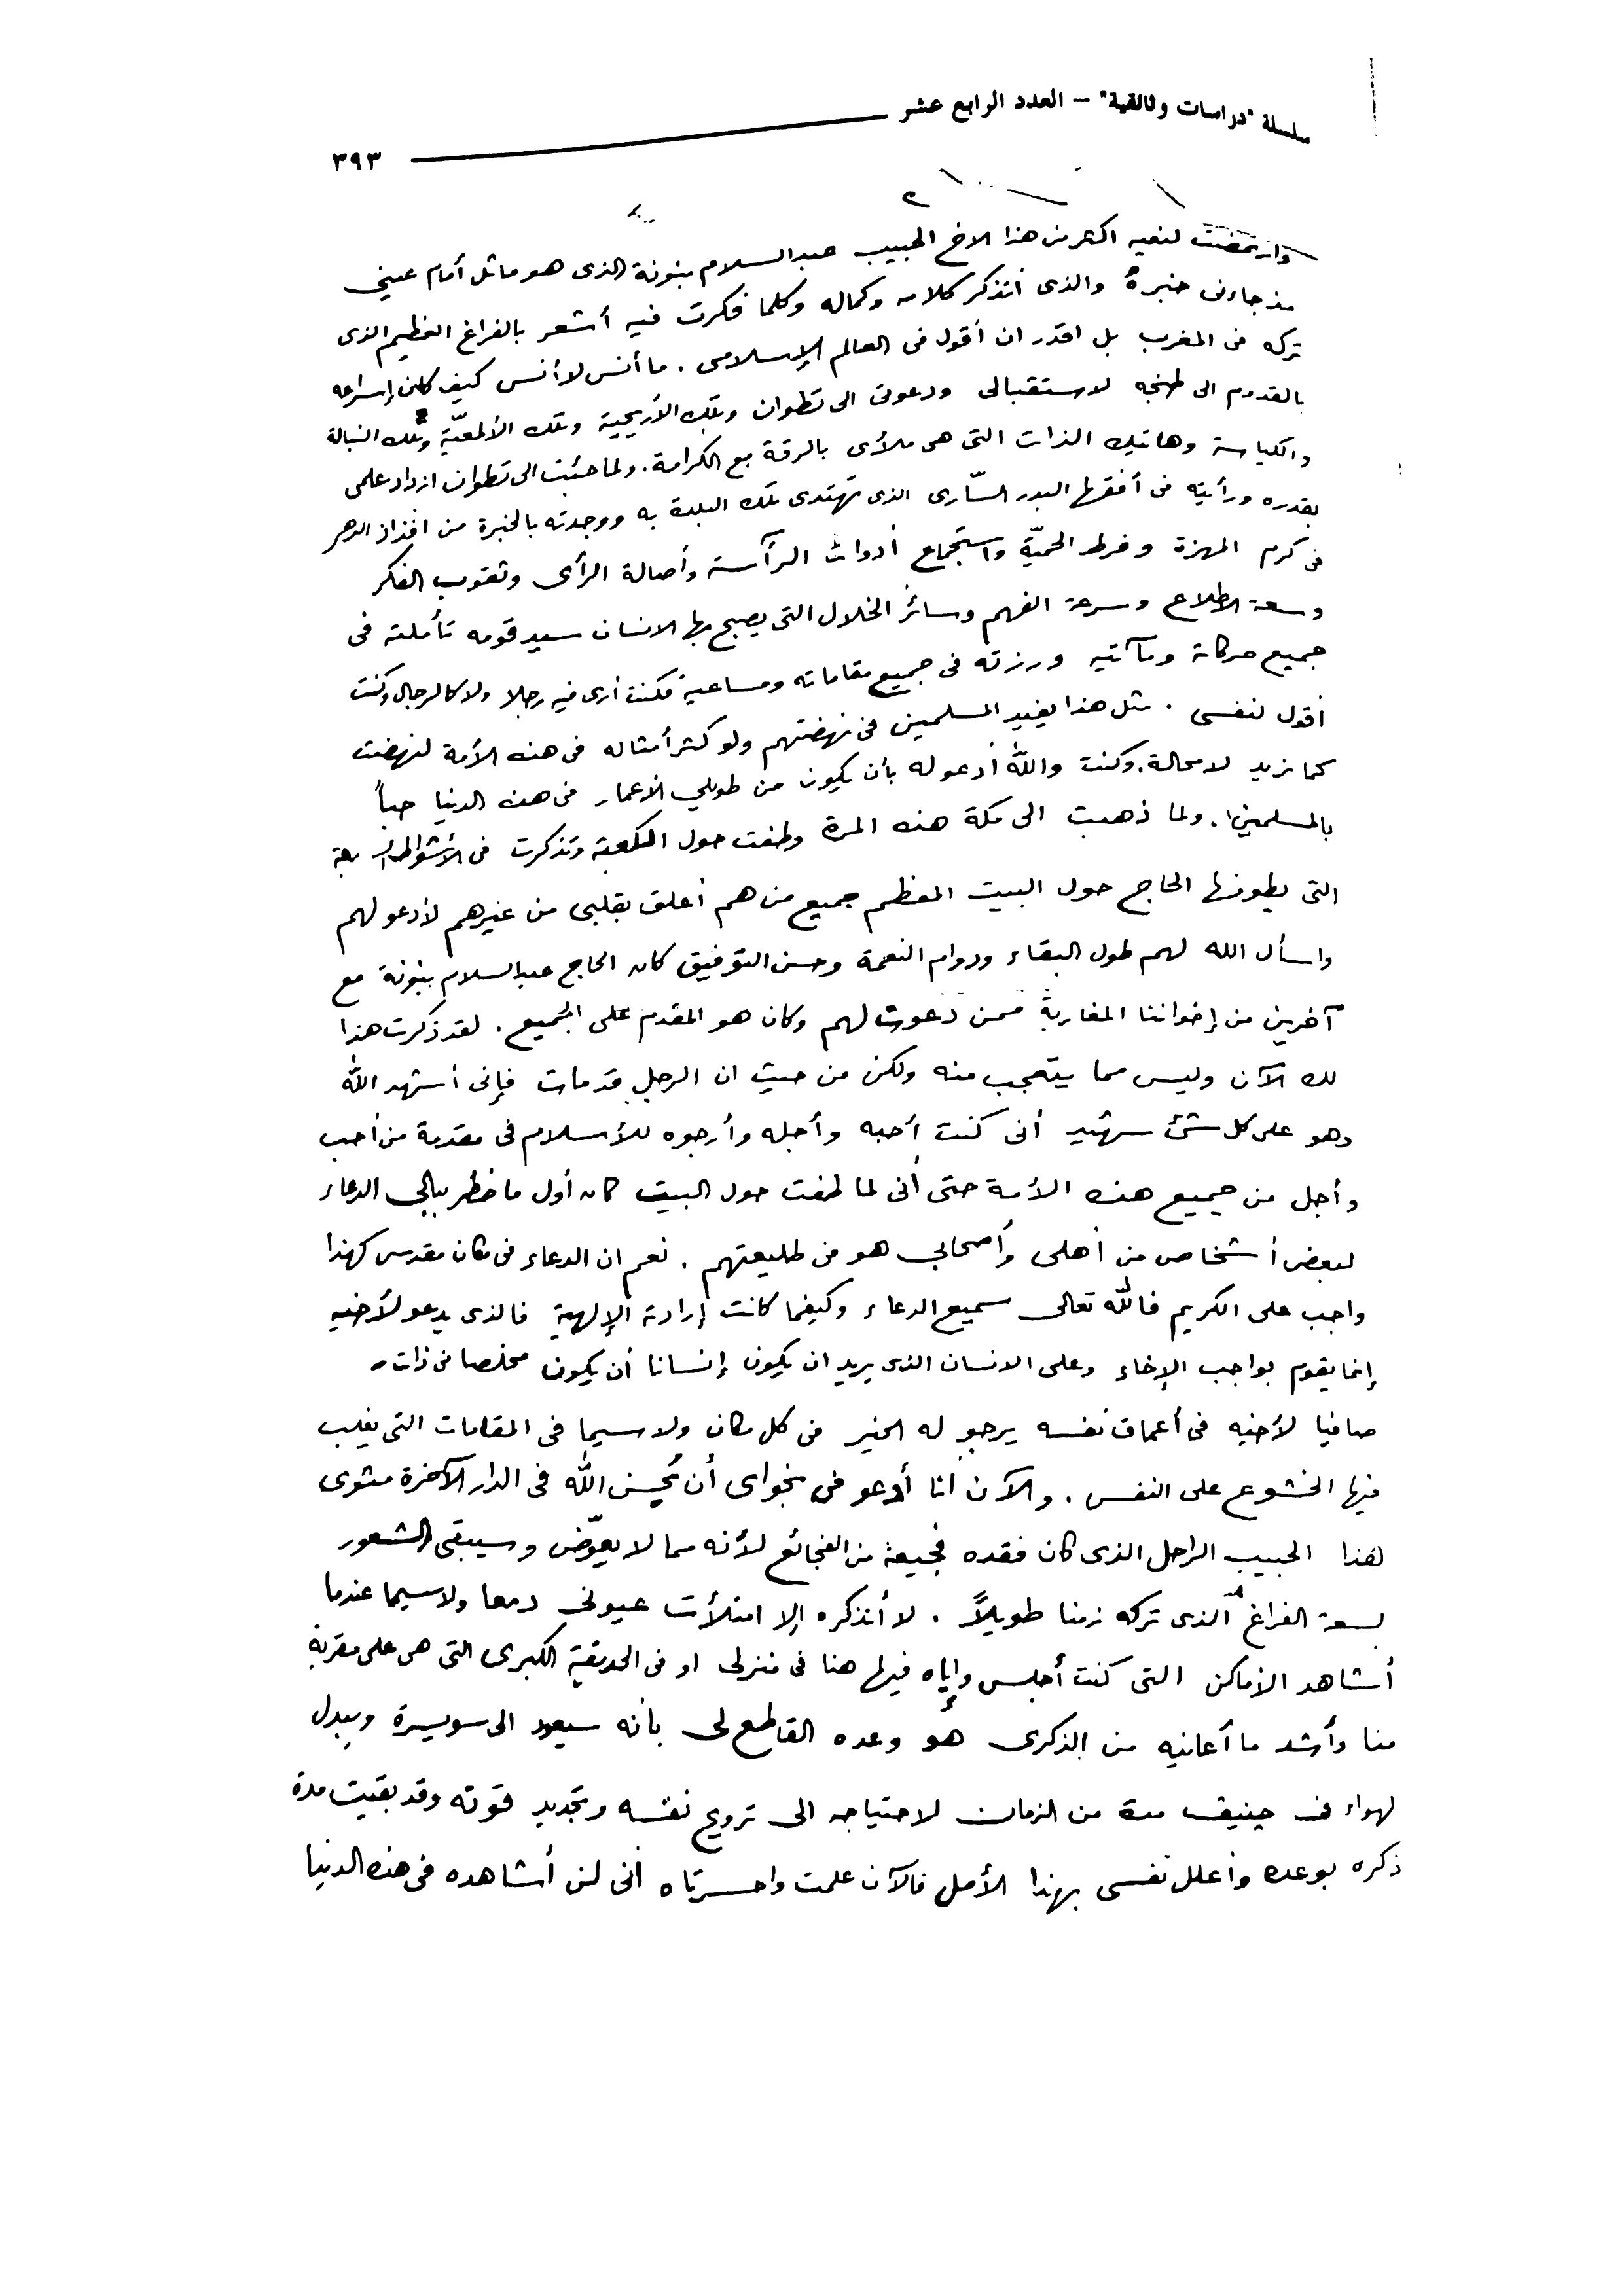 سلسلة "دراسات وثائقية" – العدد الرابع عشر
٣٩٣
وارتمضت لنعيه اكثر من هذا الاخ الحبيب عبد السلام بنونة الذى هو ماثل أمام عينى
مذ جاءنى خبره والذى أتذكر كلامه وكماله وكلما فكرت فيه أشعر بالفراغ العظيم الذى
تركه فى المغرب بل اقدر ان أقول فى العالم الإسلامى . ما أنس لا أنس كيف كان إسراعه
بالقدوم الى طنجه لاستقبالى ودعوتى الى تطوان وتلك الأريحية وتلك الألمعيّة وتلك النبالة
والكياسة وهاتيك الذات التى هى ملأى بالرقة مع الكرامة . ولما جئت الى تطوان ازداد علمى
بقدره ورأيته فى أفقها البدر السّارى الذى تهتدى تلك البلدة به ووجدته بالخبرة من افذاذ الدهر
فى كرم المهزة وفرط الحميّة واستجماع أدوات الرآسة وأصالة الرأى وثقوب الفكر
وسعة الاطلاع وسرعة الفهم وسائر الخلال التى يصبح بها الانسان سيد قومه تأملته فى
جميع حركاته ومآتيه ورزته فى جميع مقاماته ومساعيه فكنت أرى فيه رجلا ولا كالرجال وكنت
أقول لنفسى . مثل هذا يفيد المسلمين فى نهضتهم ولو كثر أمثاله فى هذه الأمة لنهضت
كما نريد لا محالة . وكنت والله أدعو له بأن يكون من طويلي الأعمار فى هذه الدنيا حباً
بالمسلمين . ولما ذهبت الى مكة هذه المرة وطفت حول الكعبة وتذكرت فى الأشواط السبعة
التى يطوفها الحاج حول البيت المعظم جميع من هم أعلق بقلبى من غيرهم لأدعو لهم
واسأل الله لهم طول البقاء ودوام النعمة وحسن التوفيق كان الحاج عبد السلام بنونة مع
آخرين من إخواننا المغاربة ممن دعوت لهم وكان هو المقدم على الجميع . لقد ذكرت هذا
لك الآن وليس مما يتعجب منه ولكن من حيث ان الرجل قد مات فإنى أشهد الله
وهو على كل شئ شهيد أنى كنت أحبه وأجله وأرجوه للأسلام فى مقدمة من أحب
وأجل من جميع هذه الأمة حتى أنى لما طفت حول البيت كان أول ما خطر ببالي الدعاء
لبعض أشخاص من أهلى وأصحابي هو فى طليعتهم . نعم ان الدعاء فى مكان مقدس كهذا
واجب على الكريم فالله تعالى سميع الدعاء وكيفما كانت إرادته الإلهية فالذى يدعو لأخيه
إنما يقوم بواجب الإخاء وعلى الانسان الذى يريد ان يكون إنسانا أن يكون مخلصا فى ذاته
صافيا لأخيه فى أعماق نفسه يرجو له الخير فى كل مكان ولا سيما فى المقامات التى يغلب
فيها الخشوع على النفس . والآن انا أدعو فى نجواى أن يُحسن الله فى الدار الآخرة مثوى
هذا الحبيب الراحل الذى كان فقده فجيعة من الفجائع لأنه مما لا يعوّض وسيبقى الشعور
بسعة الفراغ الذى تركه زمنا طويلاً . لا أتذكره إلا امتلأت عيونى دمعا ولا سيما عندما
أشاهد الأماكن التى كنت أجلس وإياه فيها هنا فى منزلى او فى الحديقة الكبرى التى هى على مقربة
منا وأشد ما أعانيه من الذكرى هو وعده القاطع لى بأنه سيعود الى سويسرة ويبدل
الهواء فى جنيف مدة من الزمان لاحتياجه الى ترويح نفسه وتجديد قوته وقد بقيت مدة
أذكره بوعده وأعلل نفسى بهذا الأمل فالآن علمت واحسرتاه أنى لن أشاهده فى هذه الدنيا